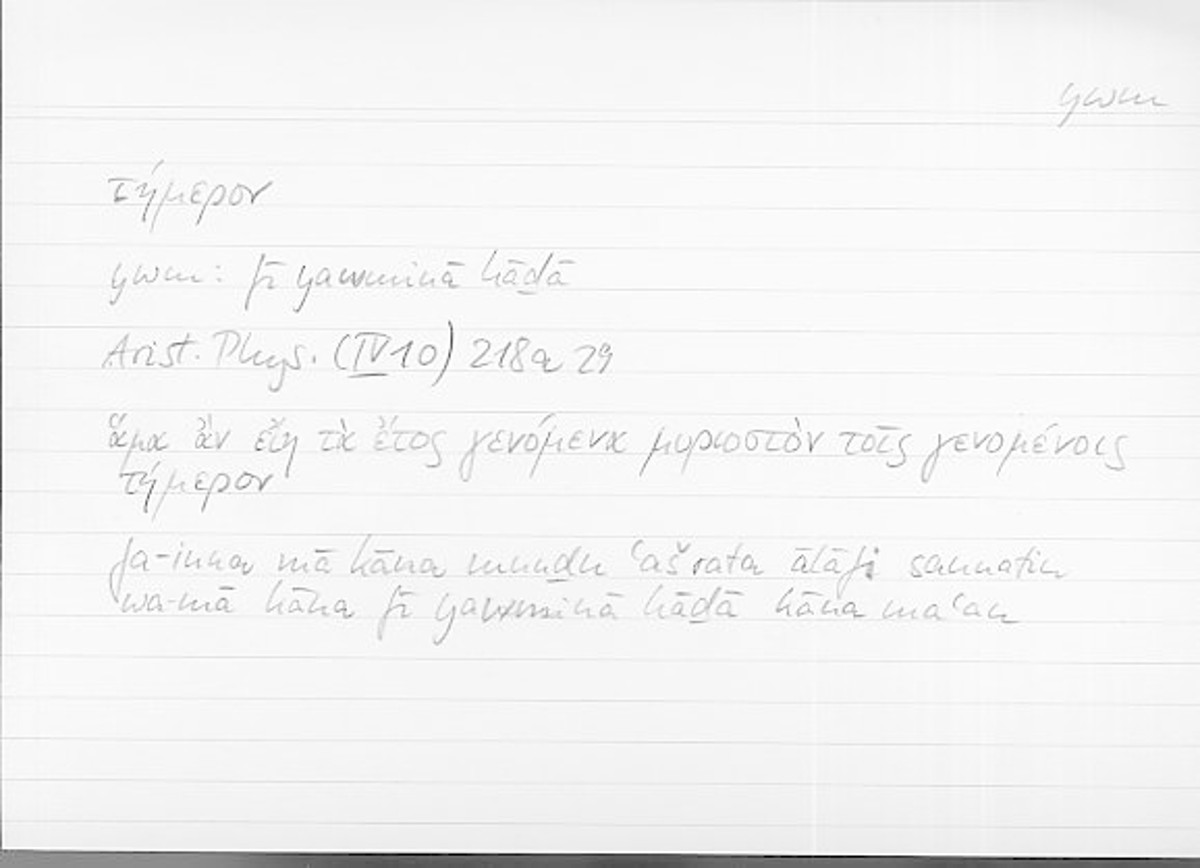 ywm
τήμερον
ywm: fī yawminā hāḏā
Arist. Phys. (IV 10) 218a 29
ἅμα ἂν εἴη τὰ ἔτος γενόμενα μυριοστὸν τοῖς γενομένοις
τήμερον
fa-inna mā kāna munḏu ʿašrata ālāfi sannatin
wa-mā kāna fī yawminā hāḏā kāna maʿan